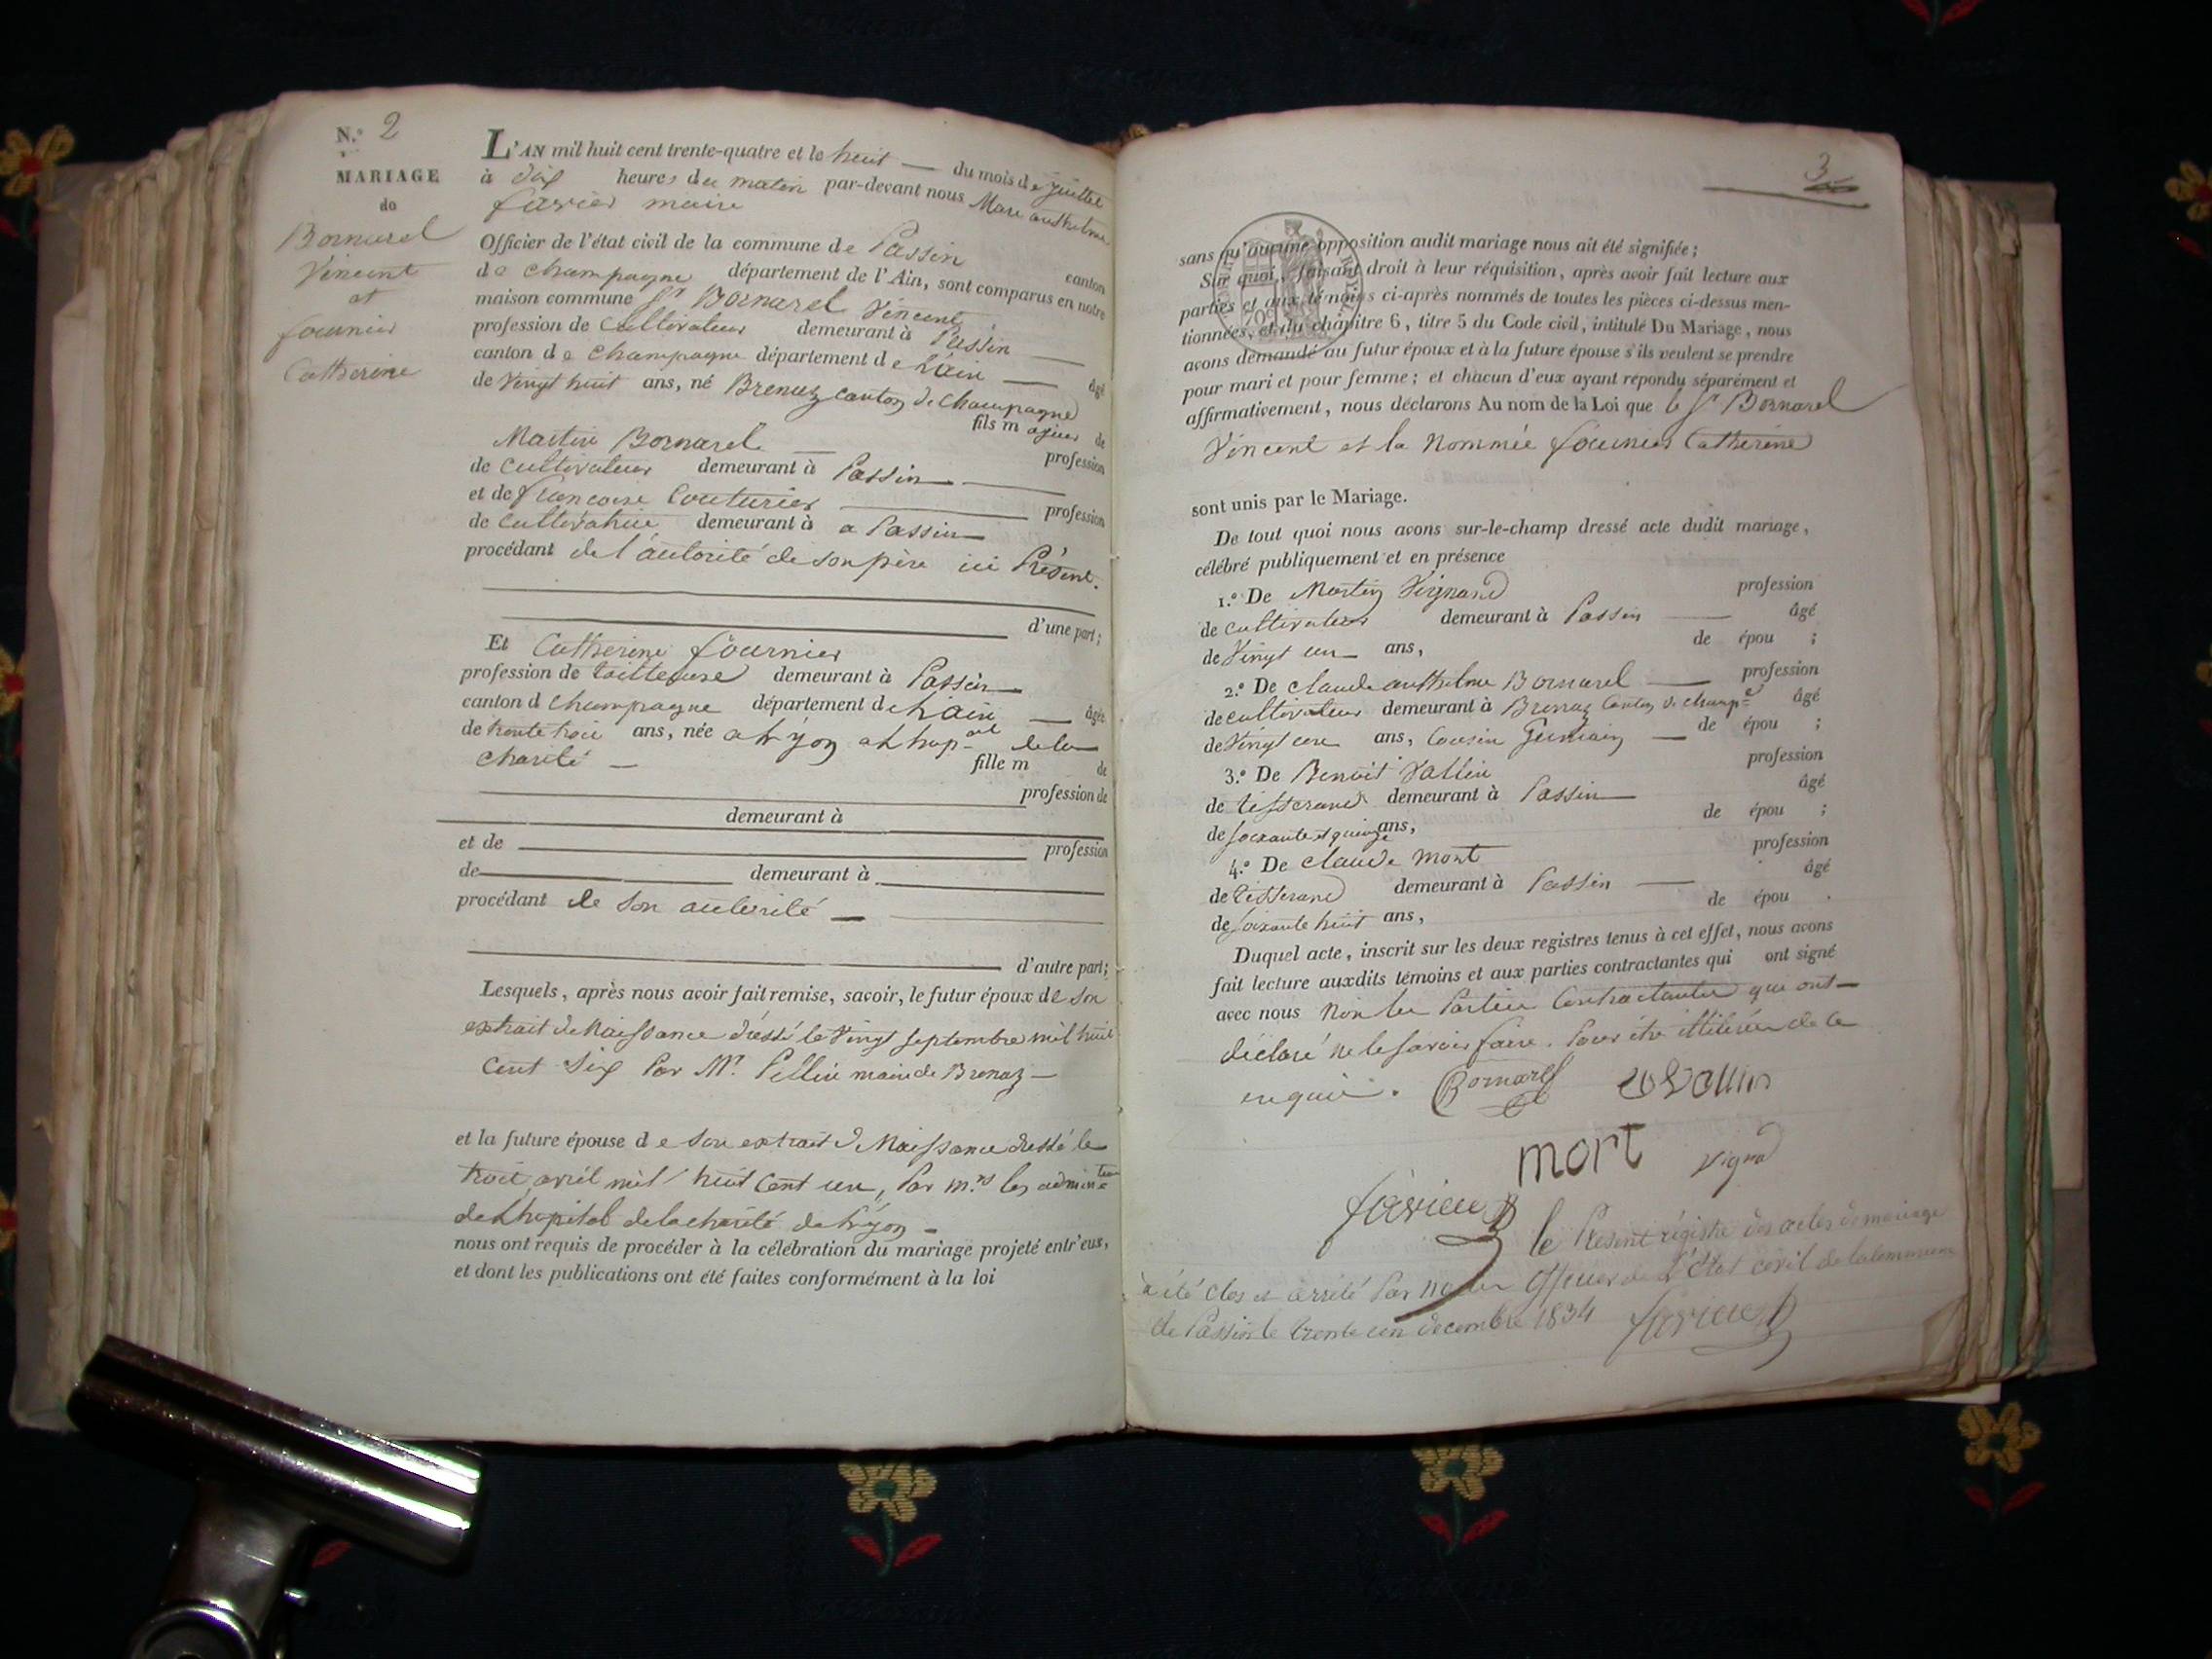 N.º 2
MARIAGE
de
Bornarel
Vincent
et
fournier
Catherine
L'AN mil huit cent trente-quatre et le huit du mois de juillet
à dix heures du matin par-devant nous Marc anthelme
favier maire
Officier de l'état civil de la commune de Passin canton
de champagne département de l'Ain, sont comparus en notre
maison commune Sr Bornarel Vincent
profession de Cultivateur demeurant à Passin
canton de champagne département de l'ain âgé
de Vingt huit ans, né Brenaz canton de champagne
fils majeur de
Martin Bornarel profession
de cultivateur demeurant à Passin
et de françoise Couturier profession
de Cultivatrice demeurant à a Passin
procédant de l'autorité de son père ici Présent.
d'une part;
Et Catherine fournier
profession de tailleuse demeurant à Passin
canton d champagne département de l'ain âgée
de trente trois ans, née a Lyon a L'hop.al de la
charité fille m de
profession de
demeurant à
et de profession
de demeurant à
procédant de son autorité
d'autre part;
Lesquels, après nous avoir fait remise, savoir, le futur époux de son
extrait de Naissance dressé le Vingt septembre mil huit
cent Six Par Mr. Pellin maire de Brenaz
et la future épouse de son extrait de Naissance dressé le
trois avril mil huit cent un, Par m.rs les
de L'hopital de la charité de Lyon
nous ont requis de procéder à la célébration du mariage projeté entr'eux,
et dont les publications ont été faites conformément à la loi
3
sans qu'aucune opposition audit mariage nous ait été signifiée;
Sur quoi, faisant droit à leur réquisition, après avoir fait lecture aux
parties et aux témoins ci-après nommés de toutes les pièces ci-dessus men-
tionnées, et du chapitre 6, titre 5 du Code civil, intitulé Du Mariage, nous
avons demandé au futur époux et à la future épouse s'ils veulent se prendre
pour mari et pour femme; et chacun d'eux ayant répondu séparément et
affirmativement, nous déclarons Au nom de la Loi que le Sr Bornarel
Vincent et la Nommée fournier Catherine
sont unis par le Mariage.
De tout quoi nous avons sur-le-champ dressé acte dudit mariage,
célébré publiquement et en présence
1.º De Martin Vignand profession
de cultivateur demeurant à Passin âgé
de Vingt un ans, de épou ;
2.º De claude anthelme Bornarel profession
de cultivateur demeurant à Brenaz Canton de champ.e âgé
de Vingt un ans, Cousin Germain de épou ;
3.º De Benoit Vallin profession
de tisserand demeurant à Passin âgé
de soixante et quinze ans, de épou ;
4.º De claude mort profession
de tisserand demeurant à Passin âgé
de soixante huit ans, de épou .
Duquel acte, inscrit sur les deux registres tenus à cet effet, nous avons
fait lecture auxdits témoins et aux parties contractantes qui ont signé
avec nous Non les Parties Contractantes qui ont
déclaré ne le savoir faire. Pour être illiterés de ce
enquis. Bornarel Vallin
mort Vignd
favier
le Présent régistre des actes de mariage
a été clos et arrêté Par nous officier de L'Etat civil de la commune
de Passin le trente un decembre 1834 favier